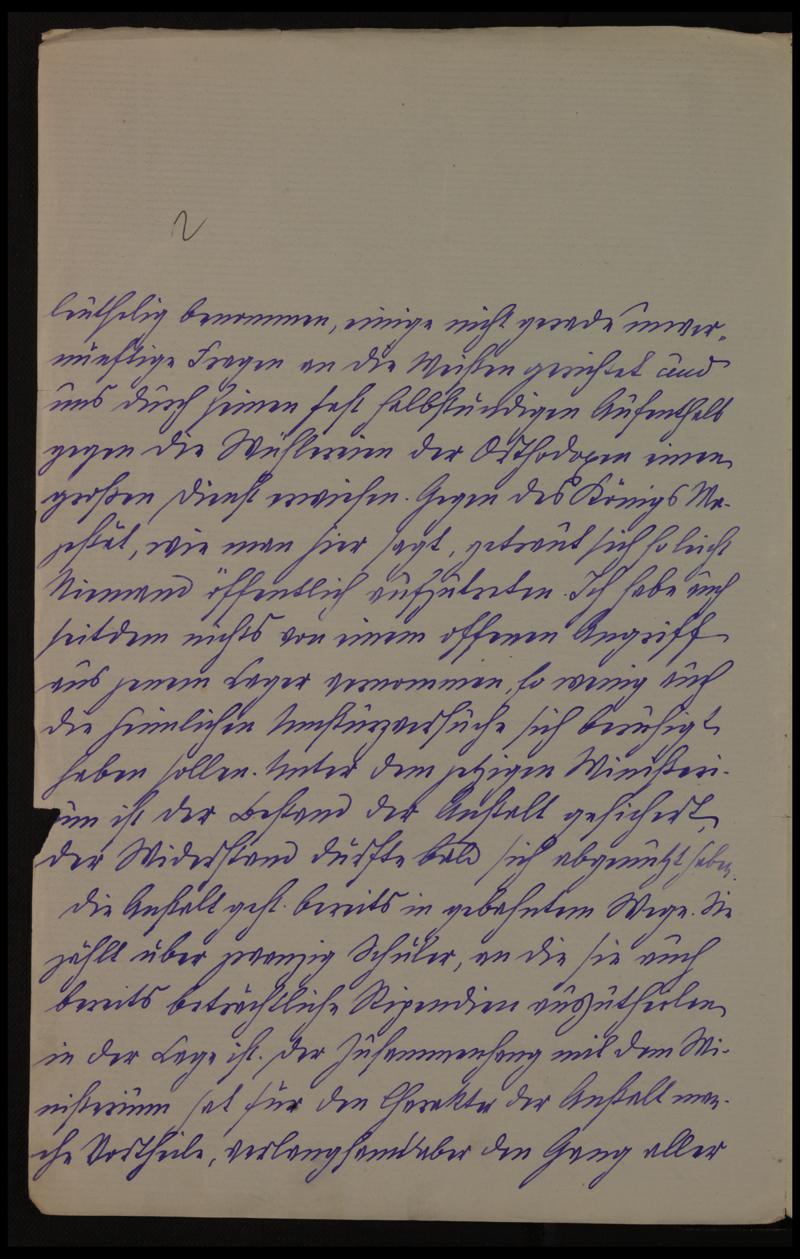 2
leutselig benommen, einige nicht gerade unver-
nünftige Fragen an die Weisen gerichtet und
uns durch seinen fast halbstündigen Aufenthalt
gegen die Wühlereien der Orthodoxen einen
großen Dienst erwiesen. Gegen des Königs Ma-
jestät, wie man hier sagt, getraut sich so leicht
Niemand öffentlich aufzutreten. Ich habe auch
seitdem nichts von einem offenen Angriff
aus jenem Lager vernommen, so wenig auch
die heimlichen Umsturzversuche sich beruhigt
haben sollen. Unter dem jetzigen Ministeri-
um ist der Bestand der Anstalt gesichert,
der Widerstand dürfte bald sich abgenützt haben.
Die Anstalt geht bereits in gebahntem Wege. Sie
zählt über zwanzig Schüler, an die sie auch
bereits beträchtliche Stipendien auszutheilen
in der Lage ist. Der Zusammenhang mit dem Mi-
nisterium hat für den Charakter der Anstalt man-
che Vortheile, verlangsamt aber den Gang aller